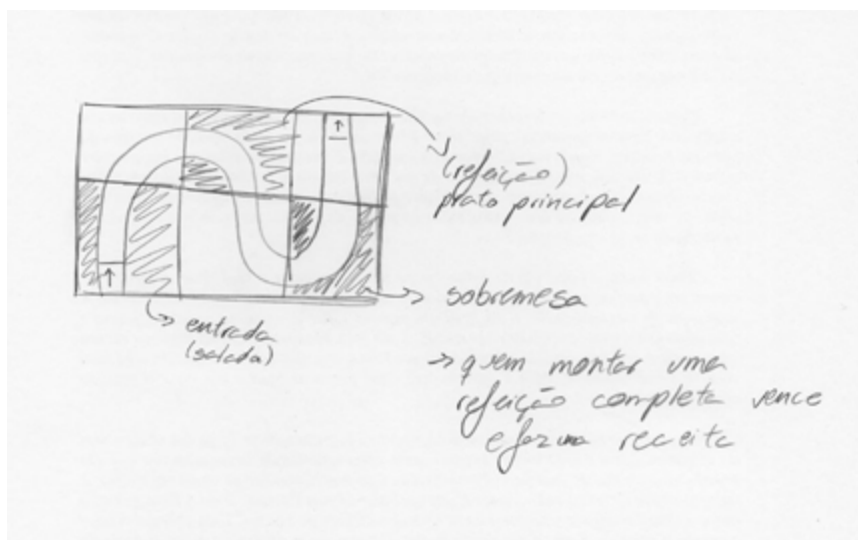 (refeição)
prato principal
sobremesa
entrada
(salada)
quem montar uma
refeição completa vence
e faz uma receita